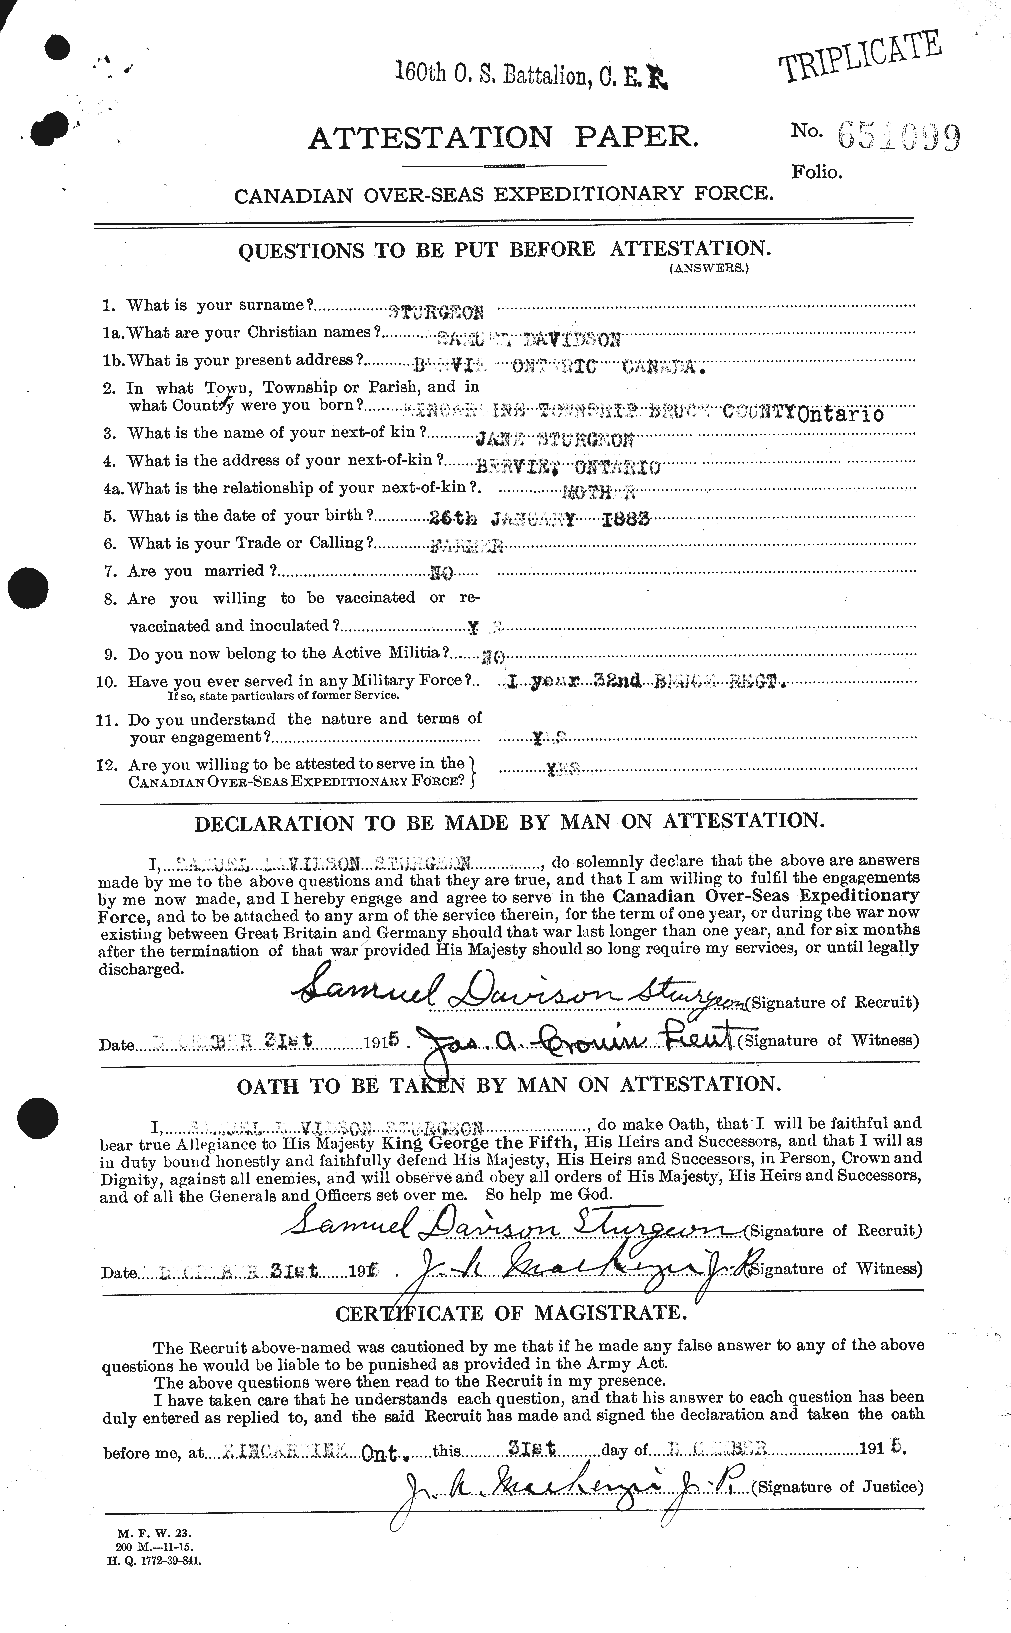 160th O. S. Battalion, C. E. F.
TRIPLICATE
ATTESTATION PAPER.
No. 651099
Folio.
CANADIAN OVER-SEAS EXPEDITIONARY FORCE.
QUESTIONS TO BE PUT BEFORE ATTESTATION.
(ANSWERS.)
1. What is your surname? STURGEON
1a. What are your Christian names? SAMUEL DAVIDSON
1b. What is your present address? ONTARIO CANADA.
2. In what Town, Township or Parish, and in
what County were you born? KINCARDINE TOWNSHIP BRUCE COUNTY Ontario
3. What is the name of your next-of kin? JANE STURGEON
4. What is the address of your next-of-kin? BERVIE, ONTARIO
4a. What is the relationship of your next-of-kin?. MOTHER
5. What is the date of your birth? 26th JANUARY 1883
6. What is your Trade or Calling? FARMER
7. Are you married? NO
8. Are you willing to be vaccinated or re-
vaccinated and inoculated? YES
9. Do you now belong to the Active Militia? NO
10. Have you ever served in any Military Force?.. 1 year 32nd BRUCE REGT.
If so, state particulars of former Service.
11. Do you understand the nature and terms of
your engagement? YES
12. Are you willing to be attested to serve in the
CANADIAN OVER-SEAS EXPEDITIONARY FORCE? } YES
DECLARATION TO BE MADE BY MAN ON ATTESTATION.
I, SAMUEL DAVIDSON STURGEON, do solemnly declare that the above are answers
made by me to the above questions and that they are true, and that I am willing to fulfil the engagements
by me now made, and I hereby engage and agree to serve in the Canadian Over-Seas Expeditionary
Force, and to be attached to any arm of the service therein, for the term of one year, or during the war now
existing between Great Britain and Germany should that war last longer than one year, and for six months
after the termination of that war provided His Majesty should so long require my services, or until legally
discharged.
Samuel Davison Sturgeon (Signature of Recruit)
Date DECEMBER 31st 1915 Jas. A. Cronin Lieut (Signature of Witness)
OATH TO BE TAKEN BY MAN ON ATTESTATION.
I, SAMUEL DAVIDSON STURGEON, do make Oath, that I will be faithful and
bear true Allegiance to His Majesty King George the Fifth, His Heirs and Successors, and that I will as
in duty bound honestly and faithfully defend His Majesty, His Heirs and Successors, in Person, Crown and
Dignity, against all enemies, and will observe and obey all orders of His Majesty, His Heirs and Successors,
and of all the Generals and Officers set over me. So help me God.
Samuel Davison Sturgeon (Signature of Recruit)
Date DECEMBER 31st 1915. J. A. MacKenzie J. P. (Signature of Witness)
CERTIFICATE OF MAGISTRATE.
The Recruit above-named was cautioned by me that if he made any false answer to any of the above
questions he would be liable to be punished as provided in the Army Act.
The above questions were then read to the Recruit in my presence.
I have taken care that he understands each question, and that his answer to each question has been
duly entered as replied to, and the said Recruit has made and signed the declaration and taken the oath
before me, at KINCARDINE Ont. this 31st day of DECEMBER 1915.
J. A. MacKenzie J. P. (Signature of Justice)
M. F. W. 23.
200 M.—11-15.
H. Q. 1772-39-841.